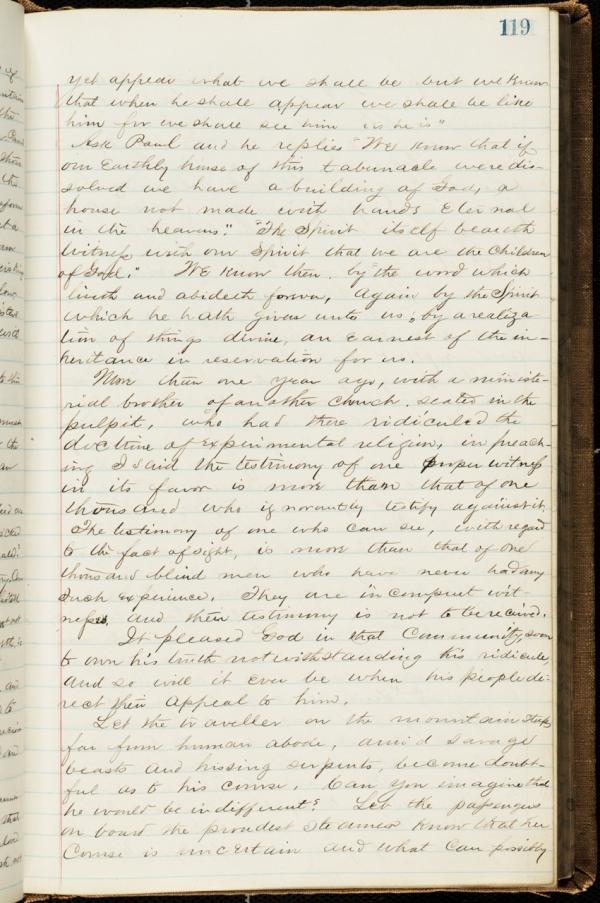 119
yet appear what we shall be but we know
that when he shall appear we shall be like
him for we shall see him as he is"
Ask Paul and he replies "We know that if
our Earthly house of this tabernacle were dis-
solved we have a building of God, a
house not made with hands Eternal
in the heavens." "The Spirit itself beareth
witness with our Spirit that we are the Children
of God." We know then by the word which
liveth and abideth forever, again by the Spirit
which he hath given unto us, by a realiza
tion of things divine, an earnest of the in-
heritance in reservation for us.
More than one year ago, with a ministe-
rial brother of another church, seated in the
pulpit, who had there ridiculed the
doctrine of experimental religion, in preach-
ing I said the testimony of one proper witness
in its favor is more than that of one
thousand who ignorantly testify against it.
The testimony of one who can see, with regard
to the fact of sight, is more than that of one
thousand blind men who have never had any
such experience. They are incompent wit-
nesses, and their testimony is not to be received.
It pleased God in that Community, soon
to own his truth notwithstanding this ridicule,
and so will it ever be when his people di-
rect their appeal to him.
Let the traveller on the mountain steep
far from human abode, amid savage
beasts and hissing serpents, become doubt-
ful as to his course. Can you imagine that
he would be indifferent? Let the passengers
on board the proudest steamer know that her
Course is uncertain and what can possibly